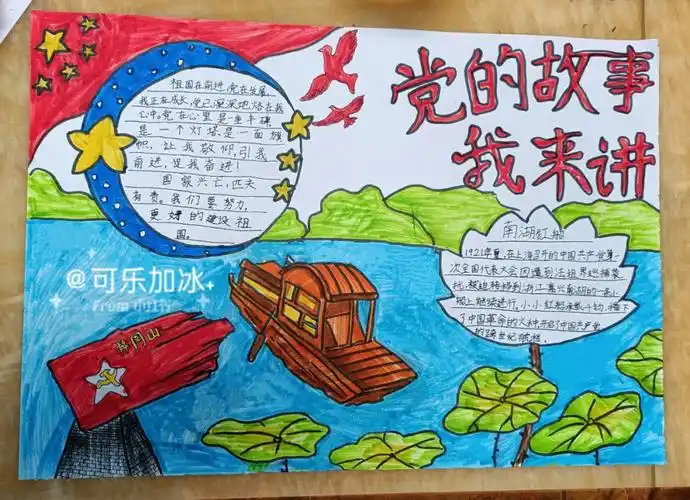 党的故事
我来讲
祖国在前进,党在发展,
我正在成长,党已深深地烙在我
心中。党在心里是一座丰碑,
是一个灯塔,是一面旗
帜,让我敬仰,引我
前进,促我奋进!
国家兴亡,匹夫
有责。我们要努力,
更好的建设祖
国。
南湖红船
1921年夏,在上海召开的中国共产党第一
次全国代表大会因遭到法租界巡捕袭
扰,被迫转移到浙江嘉兴南湖的一条小
船上继续进行。小小红船承载千钧,播下
了中国革命的火种,开启了中国共产党
的跨世纪航程。
@可乐加冰
井冈山